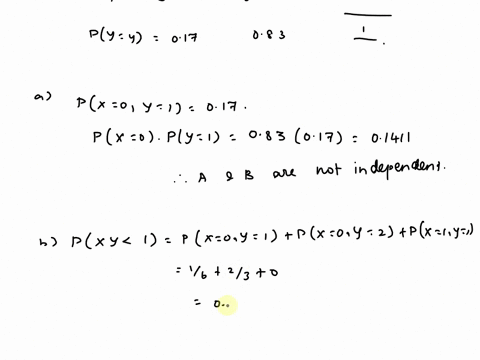 1
P(Y=y) = 0.17 0.83
a)
P(X=0, Y=1) = 0.17.
P(X=0). P(Y=1) = 0.83 (0.17) = 0.1411
∴ A & B are not independent.
b) P(XY< 1) = P(X=0,Y=1) + P(X=0,Y=2) + P(X=1,Y=1)
= 1/6 + 2/3 + 0
= 0..